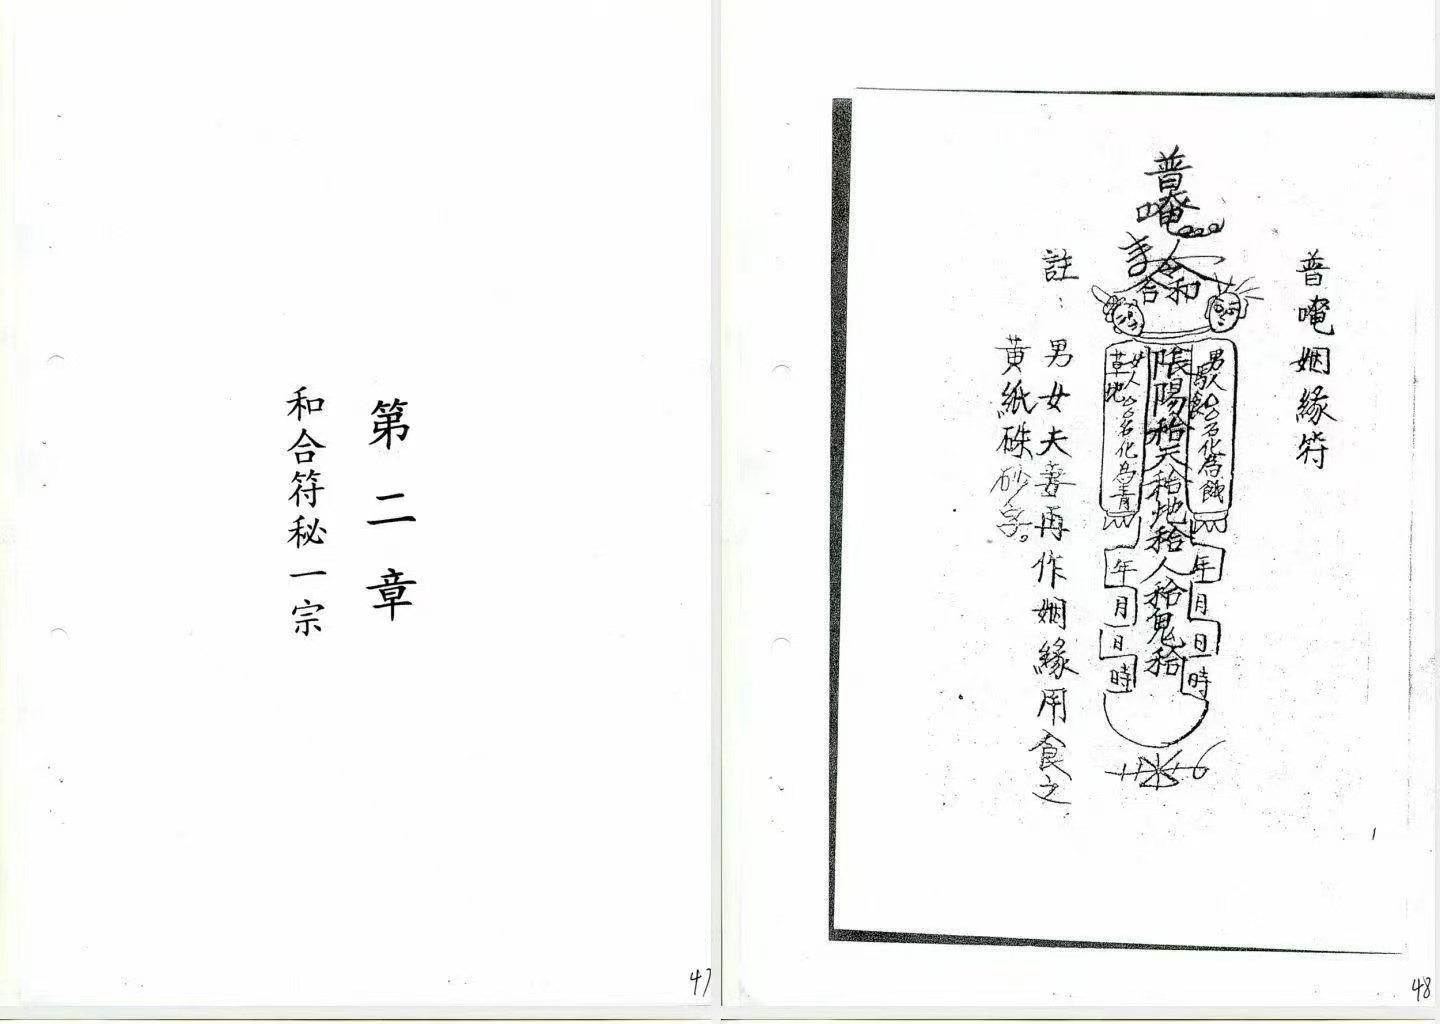 第二章
和合符秘一宗
47
普唵姻緣符
普唵
令
合和
男人
名化為餓
馭食
陽
天
地
人
鬼
女人
名化為青
草地
年月日時
年月日時
註：男女夫妻再作姻緣用食之
黃紙硃砂字。
1
48